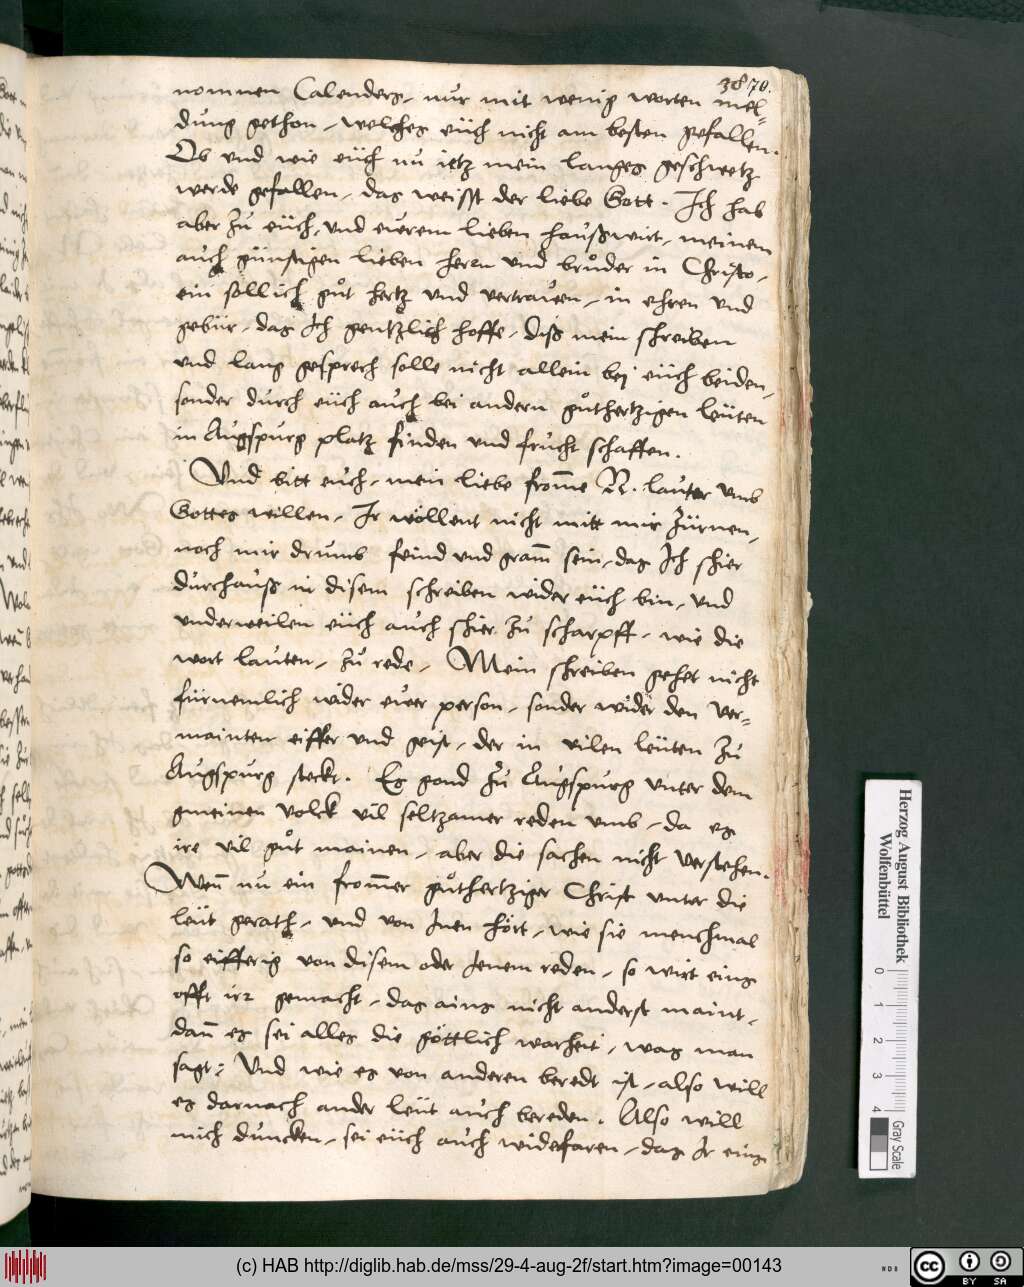 3870.
nomnen Calenders, nur mit wenig worten mel-
dung gethon, welches eüch nicht am besten gefallen.
Ob vnd wie eüch nu ietz mein langes geschwetz
werde gefallen, das weisst der liebe Gott. Ich hab
aber zu eüch, vnd eüerem lieben haußwirt, meinem
auch günstigen lieben herrn vnd brůder in Christo,
ein sollich gůt hertz vnd vertrauen, in ehren vnd
gebür, das Ich gentzlich hoffe, diß mein schreiben
vnd lang gesprech solle nicht allein bej eüch beiden,
sonder durch eüch auch bei andern gůthertzigen leüten
in Augspurg platz finden vnd frucht schaffen.
Vnd bitt euch, mein liebe from̄e R. lauter vmb
Gottes willen, Ir wöllent nicht mitt mir zürnen,
noch mir drumb feind vnd gram̄ sein, das Ich schier
durchauß in disem schreiben wider eüch bin, vnd
vnderweilen eüch auch schier zu scharpff, wie die
wort lauten, zů rede, Mein schreiben gehet nicht
fürnemlich wider euer person, sonder wider den ver-
mainten eiffer vnd geist, der in vilen leüten zu
Augspurg steckt. Es gond zů Augspurg vnter dem
gmeinen volck vil seltzamer reden vmb, da es
ire vil gůt mainen, aber die sachen nicht verstehen.
Wen̄ nu ein from̄er gůthertziger Christ vnter die
leüt gerath, vnd von Inen hört, wie sie menchmal
so eifferig von disem oder Jenem reden, so wirt eins
offt irr gemacht, das ains nicht anderst maint,
dan̄ es sei alles die göttlich warheit, was man
sagt: Vnd wie es von anderen beredt ist, also will
es darnach ander leüt auch bereden. Also will
mich duncken, sei eüch auch widefaren, das Ir eins
Herzog August Bibliothek
Wolfenbüttel
0 1 2 3 4
Gray Scale
(c) HAB http://diglib.hab.de/mss/29-4-aug-2f/start.htm?image=00143
cc BY SA